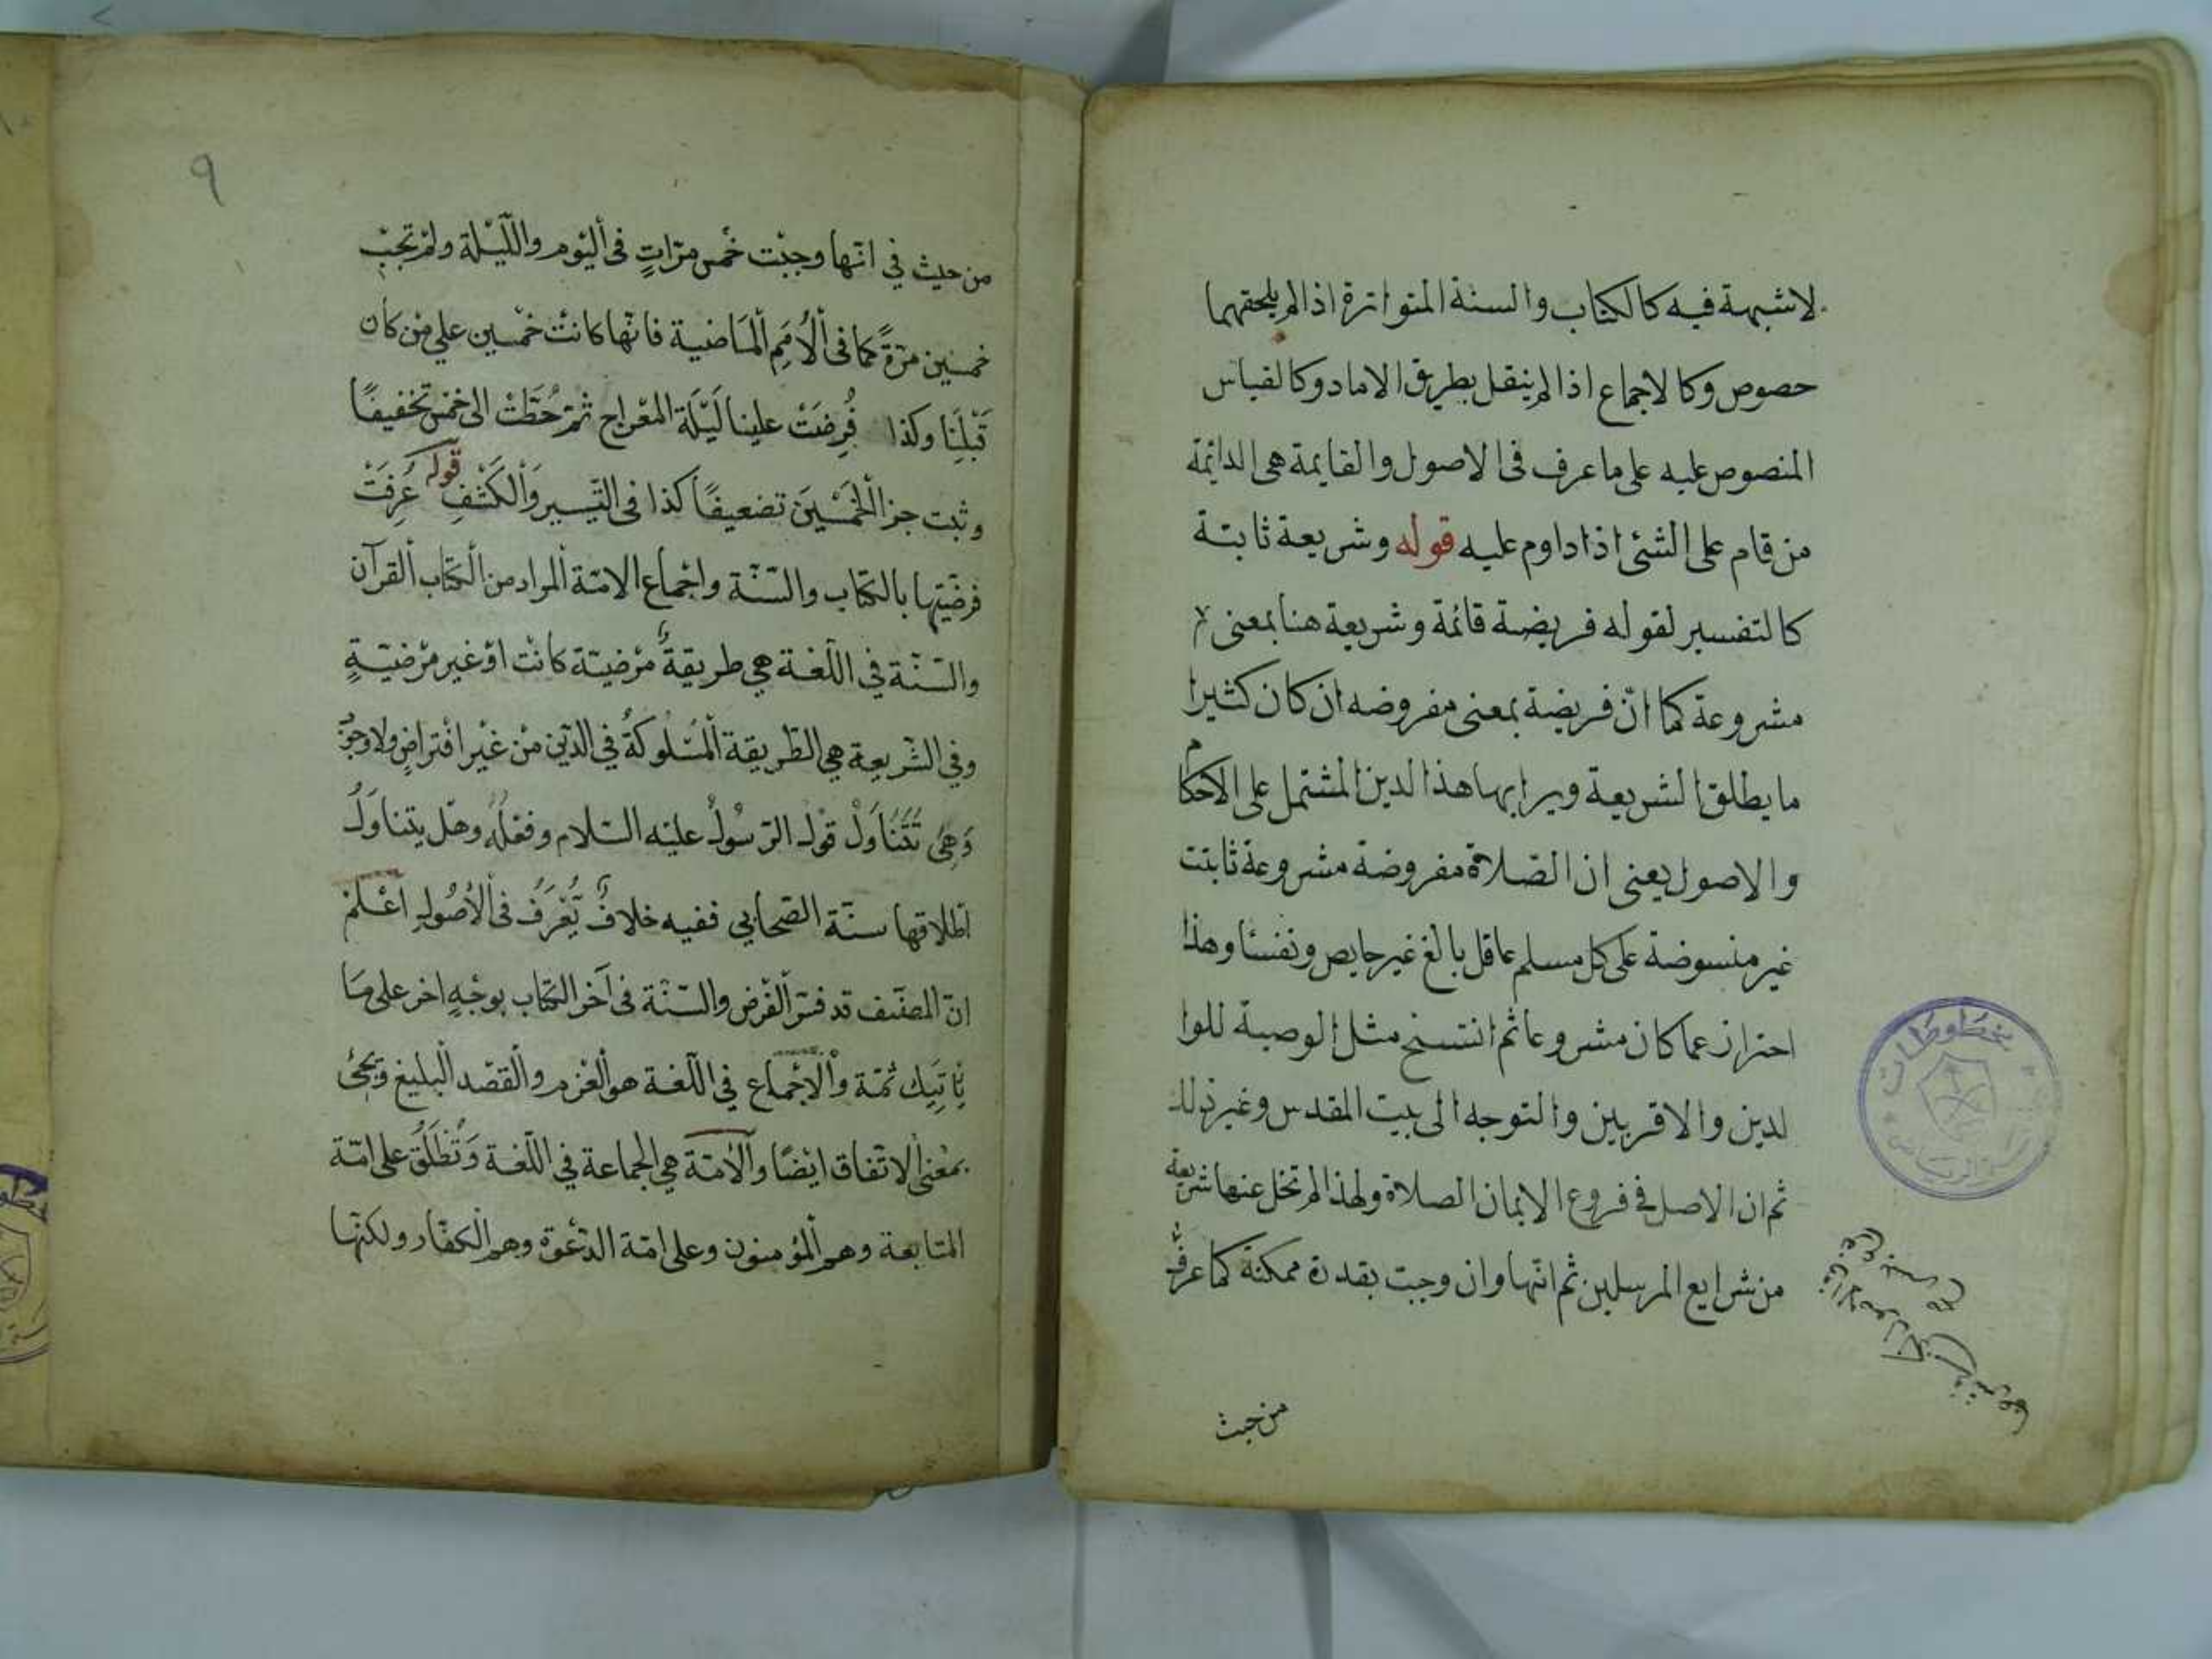 لاشبهة فيه كالكتاب والسنة المتواترة اذا لم يلحقهما
حصوص وكالاجماع اذا لم ينقل بطريق الاماد وكالقياس
المنصوص عليه على ما عرف فى الاصول والقايمة هى الدائمة
من قام على الشئ اذا داوم عليه قوله وشريعة ثابتة
كالتفسير لقوله فريضة قائمة وشريعة هنا بمعنى
مشروعة كما انّ فريضة بمعنى مفروضه ان كان كثيرا
ما يطلق الشريعة ويرا بها هذا الدين المشتمل على الاحكام
والاصول يعنى ان الصّلاة مفروضة مشروعة ثابتت
غير منسوضة على كل مسلم عاقل بالغ غير حايص ونفسا وهذا
احتراز عما كان مشروعا ثم انتسخ مثل الوصية للوا
لدين والاقربين والتوجه الى بيت المقدس وغير ذلك
ثم ان الاصل فى فروع الايمان الصلاة ولهذا لم تخل عنها شريعة
من شرايع المرسلين ثم انّها وان وجبت بقدرة ممكنة كما عرف
من حيث
٩
من حيث في انّها وجبْت خمْس مرّاتٍ فى أليوم والليْلة ولمْ تجبْ
خمسين مرّةً كما فى ألأُمَمِ ألمَاضية فانّها كانتْ خمْسين علي منْ كان
قَبْلِنَا وكذا فُرِضَتْ علينا لَيْلَة المعْراج ثمّ حُطّتْ الى خمْس تخفيفًا
وثبت جزا ألخمْسينَ تضعيفًا كذا فى التّيسير وَألكَشْفِ قوله عُرِفَتْ
فرضيّتها بالكتاب والسّنّة واجْماع الامّة ألمراد من ألكتاب ألقرآن
والسّنّة في اللّغة هي طريقةٌ مرْضيّة كانت اوْ غير مرْضيّةٍ
وفي الشّريعة هي الطّريقة ألمسْلوكةُ في الدّين منْ غيْر افتراضٍ ولا وجوب
وَهِىَ تَتَنَاوَلُ قوْل الرّسُولْ عليْه السّلام وفعْلَهُ وهلْ يتناوَلُ
اطْلاقها سنّة الصّحابي ففيه خلافٌ يُعْرَفُ فى ألأُصُولِ اعْلمْ
انّ المصنّف قد فسّر ألفرْض والسّنّة فى آخر الكتاب بوجْهٍ اخر على مَا
يَأتِيَك ثمّة وألأجْماع في اللّغة هو ألعزْم وألقصْد ألبليغ ويجئُ
بمعْنى ألاتّفاق ايْضًا وألأمّة هي ألجماعة في اللّغة وَتُطْلَقُ على امّة
المتابعة وهم ألمؤمنون وعلى امّة الدّعْوة وهم ألكفّار ولكنّها